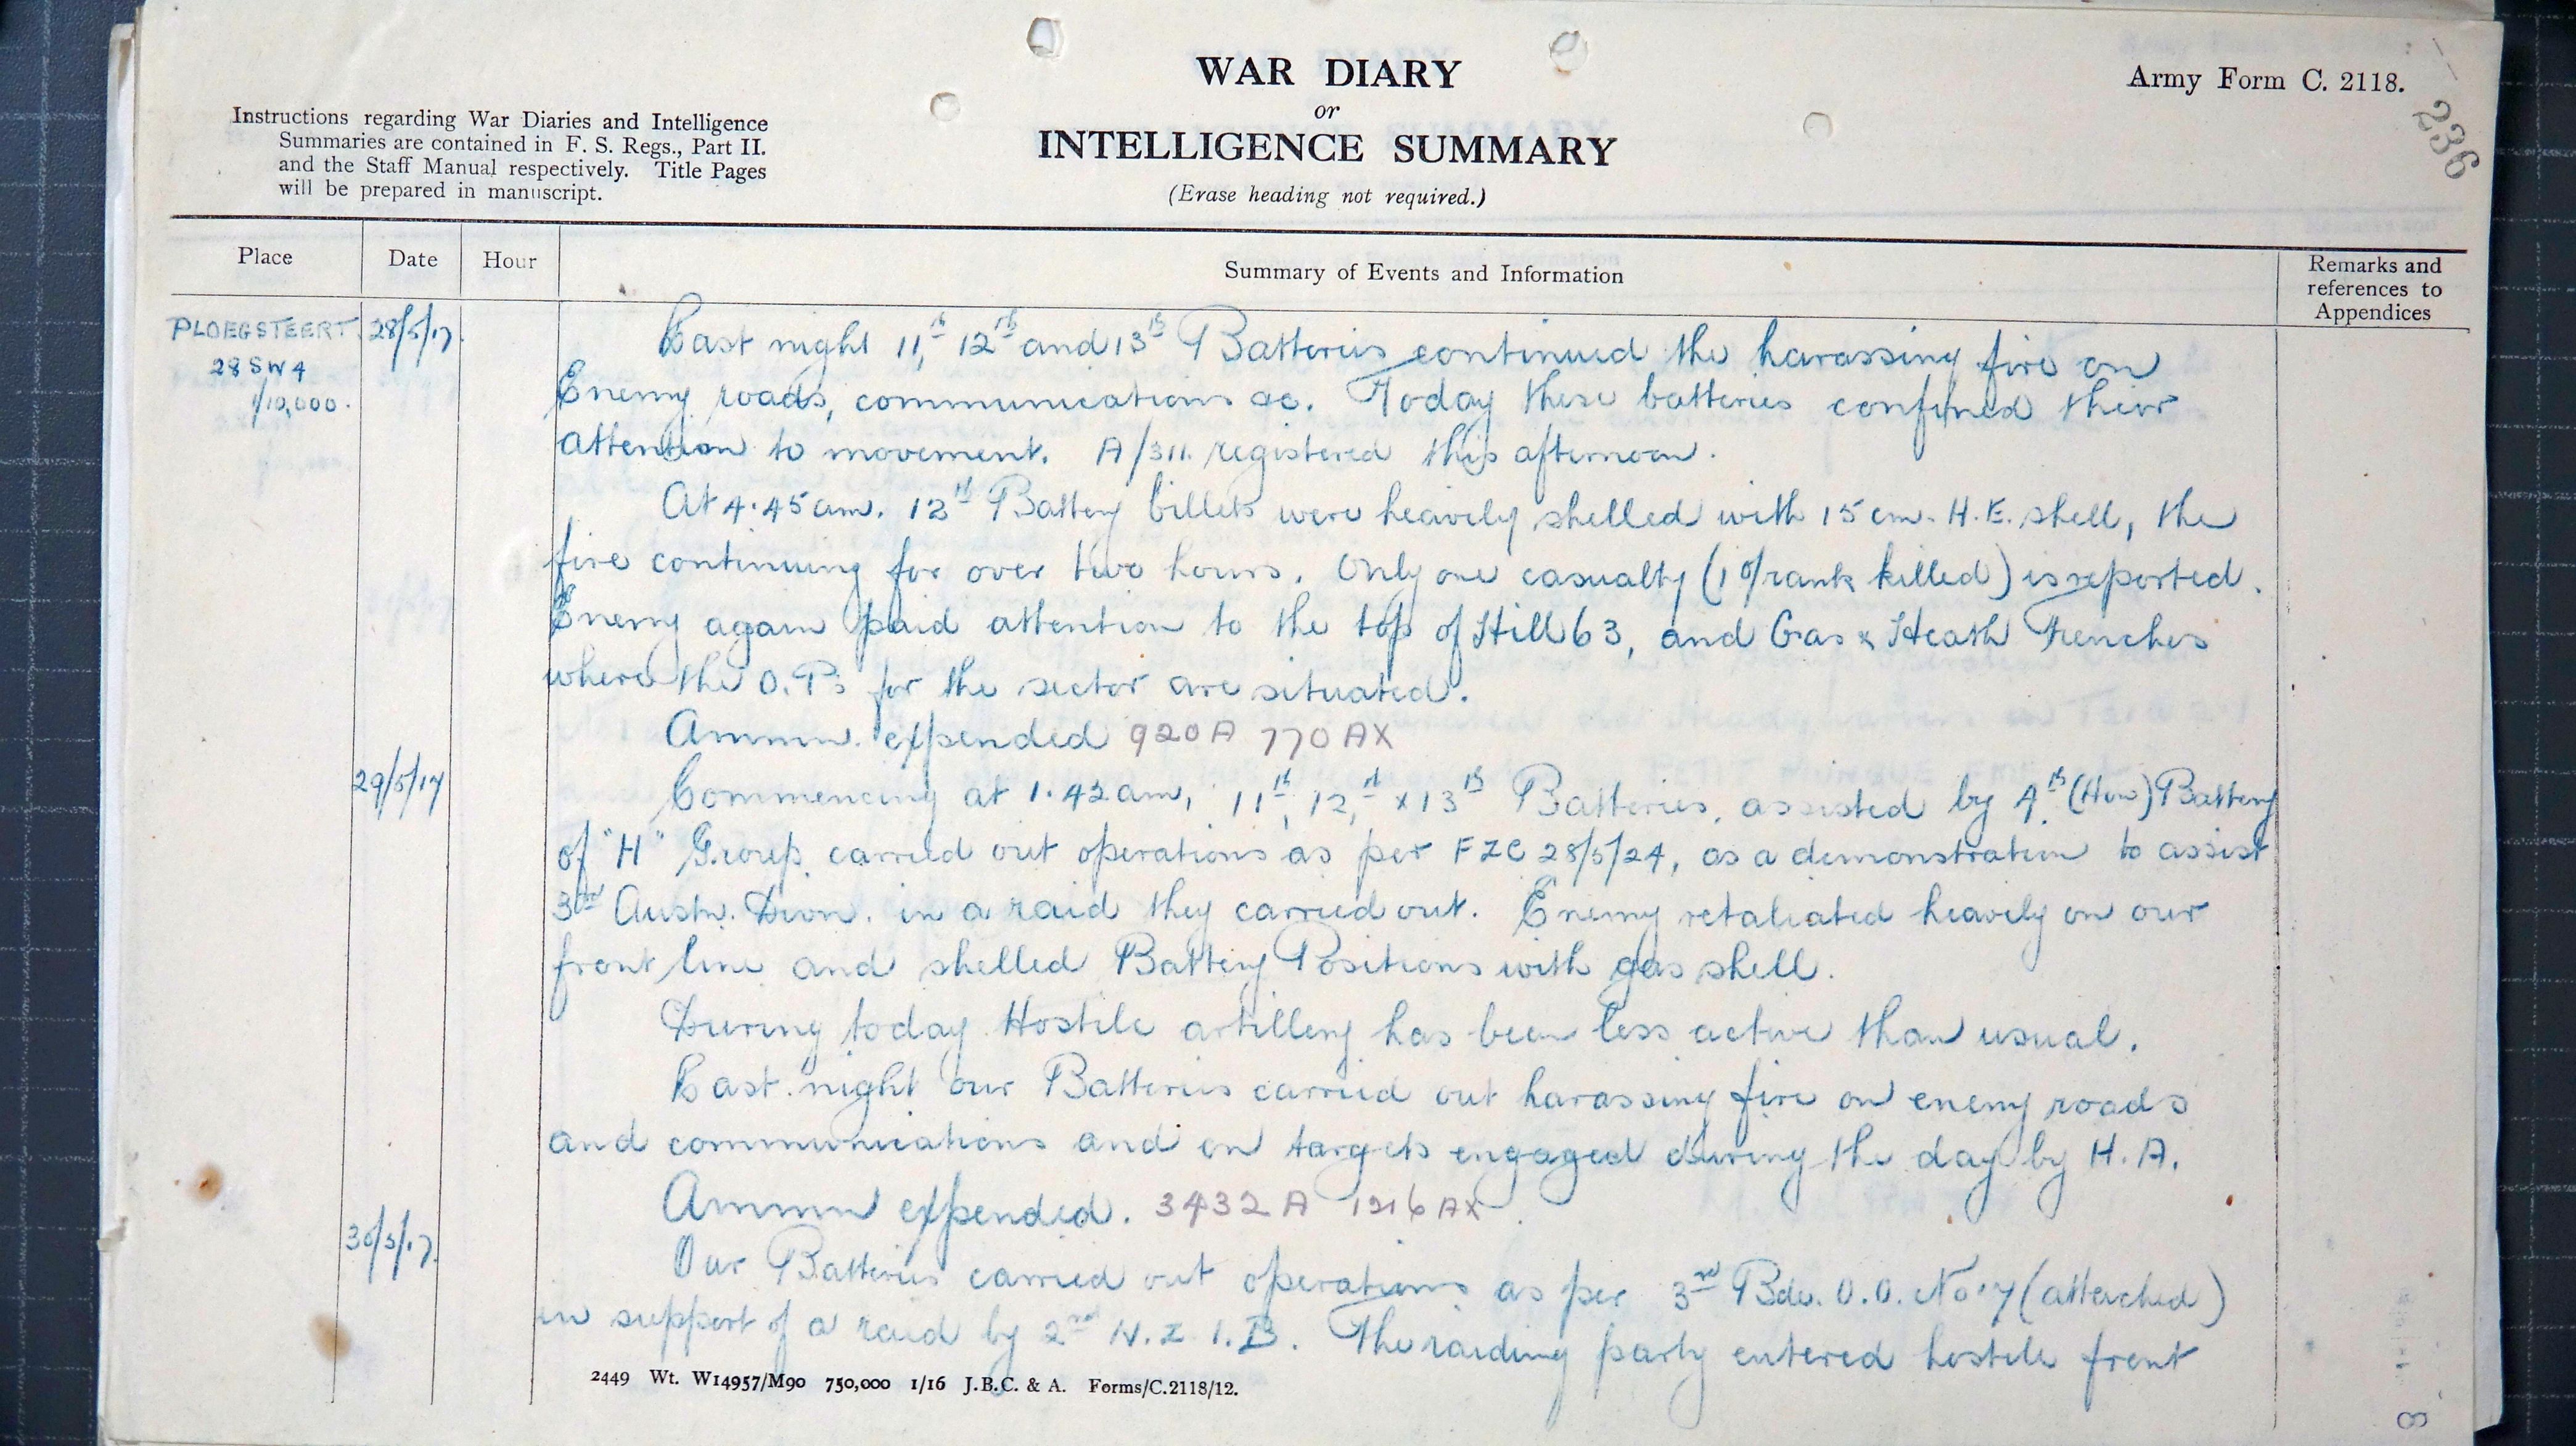 WAR DIARY
or
INTELLIGENCE SUMMARY
(Erase heading not required.)
Army Form C. 2118.
236
Instructions regarding War Diaries and Intelligence
Summaries are contained in F. S. Regs., Part II.
and the Staff Manual respectively. Title Pages
will be prepared in manuscript.
Place Date Hour Summary of Events and Information Remarks and references to Appendices
PLOEGSTEERT 28/5/17. Last night 11th, 12th and 13th Batteries continued the harassing fire on
28 SW 4 Enemy roads, communications &c. Today these batteries confined their
1/10,000. attention to movement. A/311. registered this afternoon.
At 4.45 am. 12th Battery billets were heavily shelled with 15 cm. H.E. shell, the
fire continuing for over two hours. Only one casualty (1 o/rank killed) is reported.
Enemy again paid attention to the top of Hill 63, and Gas & Heath Trenches
where the O.Ps for the sector are situated.
Ammn. expended 920 A 770 AX
29/5/17 Commencing at 1.42 am, 11th, 12th, x 13th Batteries, assisted by 4th (How) Battery
of "H" Group, carried out operations as per FZC 28/5/24, as a demonstration to assist
3rd Austn. Divn. in a raid they carried out. Enemy retaliated heavily on our
front line and shelled Battery Positions with gas shell.
During today Hostile artillery has been less active than usual.
Last night our Batteries carried out harassing fire on enemy roads
and communications and on targets engaged during the day by H.A.
Ammn expended. 3432 A AX
30/5/17. Our Batteries carried out operations as per 3rd Bde. O.O. No. 7 (attached)
in support of a raid by 2nd N.Z.I.B. The raiding party entered hostile front
2449 Wt. W14957/M90 750,000 1/16 J.B.C. & A. Forms/C.2118/12.
8